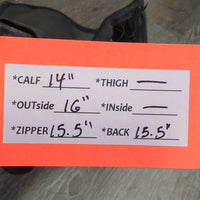 *CALF 14" *THIGH —
*OUTside 16" *INside —
*ZIPPER 15.5" *BACK 15.5"